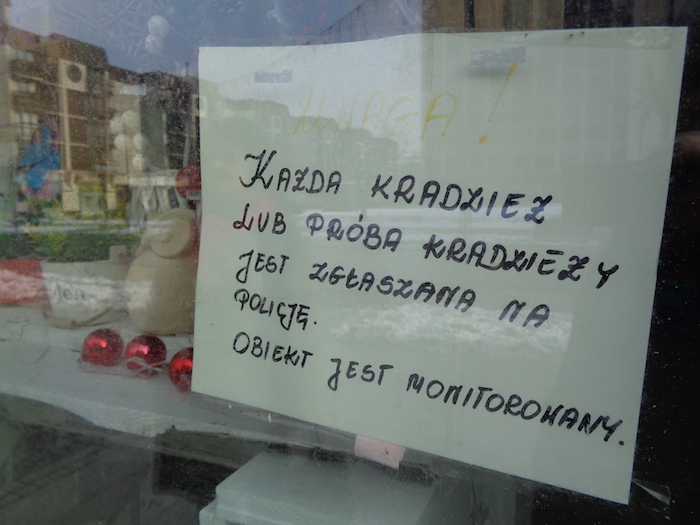 UWAGA!
KAŻDA KRADZIEŻ
LUB PRÓBA KRADZIEŻY
JEST ZGŁASZANA NA
POLICJĘ.
OBIEKT JEST MONITOROWANY.